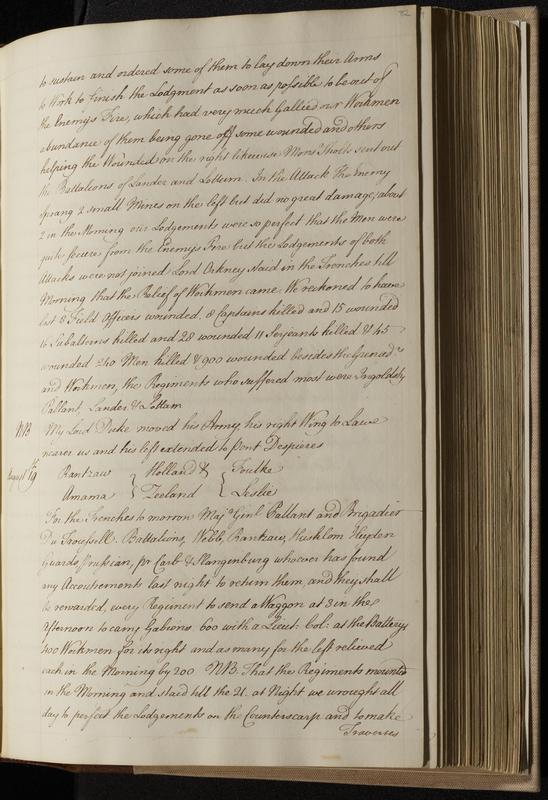 to sustain and ordered some of them to lay down their Arms
to Work to finish the Lodgment as soon as possible to be out of
the Enemys Fire, which had very much Gallied our Workmen
abundance of them being gone off some wounded and others
helping the Wounded on the right likewise Mons: sent out
the Battalions of Lander and Lottum. In the Attack The Enemy
sprang 2 small Mines on the left but did no great damage, about
2 in the Morning our Lodgements were so perfect that the Men were
quite secure from the Enemy's Fire but the Lodgements of both
Attacks were not joined Lord Orkney staid in the Trenches till
Morning that the Relief of Workmen came. We reckoned to have
lost 8 Field Officers wounded, 8 Captains killed and 15 wounded
16 Subalterns killed and 28 wounded 11 Serjeants killed & 45
wounded 240 Men killed & 900 wounded besides the Grenadrs
and Workmen, the Regiments who suffered most were Ingoldsby
Pallant, Lander & Lottum
NB My Lord Duke moved his Army, his right Wing to Lawe
nearer us and his left extended to Pont Despieres
August 19th Rantzaw Holland & Foulke
Amama } Zeeland { Leslie
For the Trenches to morrow Majr Genl Pallant and Brigadier
Du Battalions, Webb, Rantzau, Heyden
Guards, Prussian, pr Carb & Slangenburg whoever has found
any Accoutrements last night to return them, and they shall
be rewarded, every Regiment to send a Waggon at 3 in the
Afternoon to carry Gabions. 600 with a Lieut: Col: at the Battery
400 Workmen for the right and as many for the left relieved
each in the Morning by 200 NB. That the Regiments mounted
in the Morning and staid till the 21. at Night we wrought all
day to perfect the Lodgements on the Counterscarp and to make
Traverses